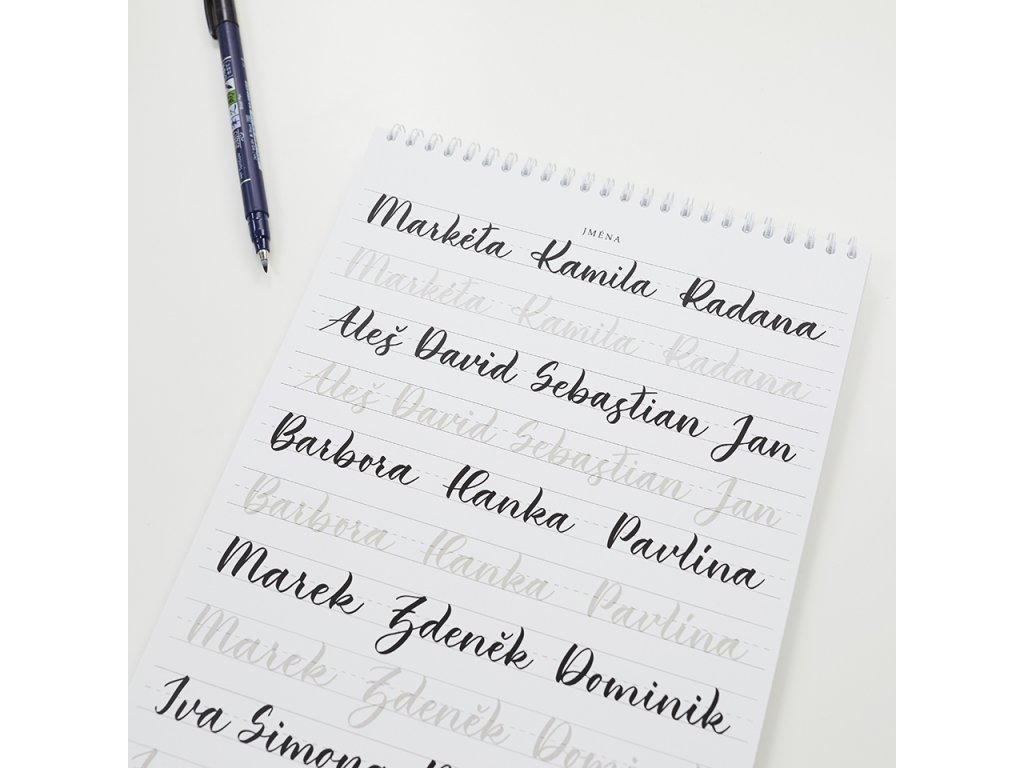 JMÉNA
Markéta Kamila Radana
Markéta Kamila Radana
Aleš David Sebastian Jan
Aleš David Sebastian Jan
Barbora Hanka Pavlína
Barbora Hanka Pavlína
Marek Zdeněk Dominik
Marek Zdeněk
Iva Simona